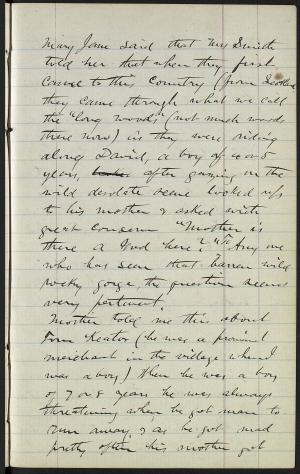 Mary Jane said that Mrs Smith
told her that when they first
come to this country (from Scotland
they came through what we call
the "long woods" (not much woods
there now) as they were riding
along David, a boy of 4 or 5
years, after gazing on the
wild desolate scene looked up
to his mother & asked with
great concern "Mother is
there a God here?" "To any one
who has seen that barren wild
rocky gorge the question seems
very pertinent.
Mother told me this about
Tom Keator (he was a
merchant in the village when I
was a boy) When he was a boy
of 7 or 8 years he was always
threatening when he got mad to
run away & as he got mad
pretty often his mother got